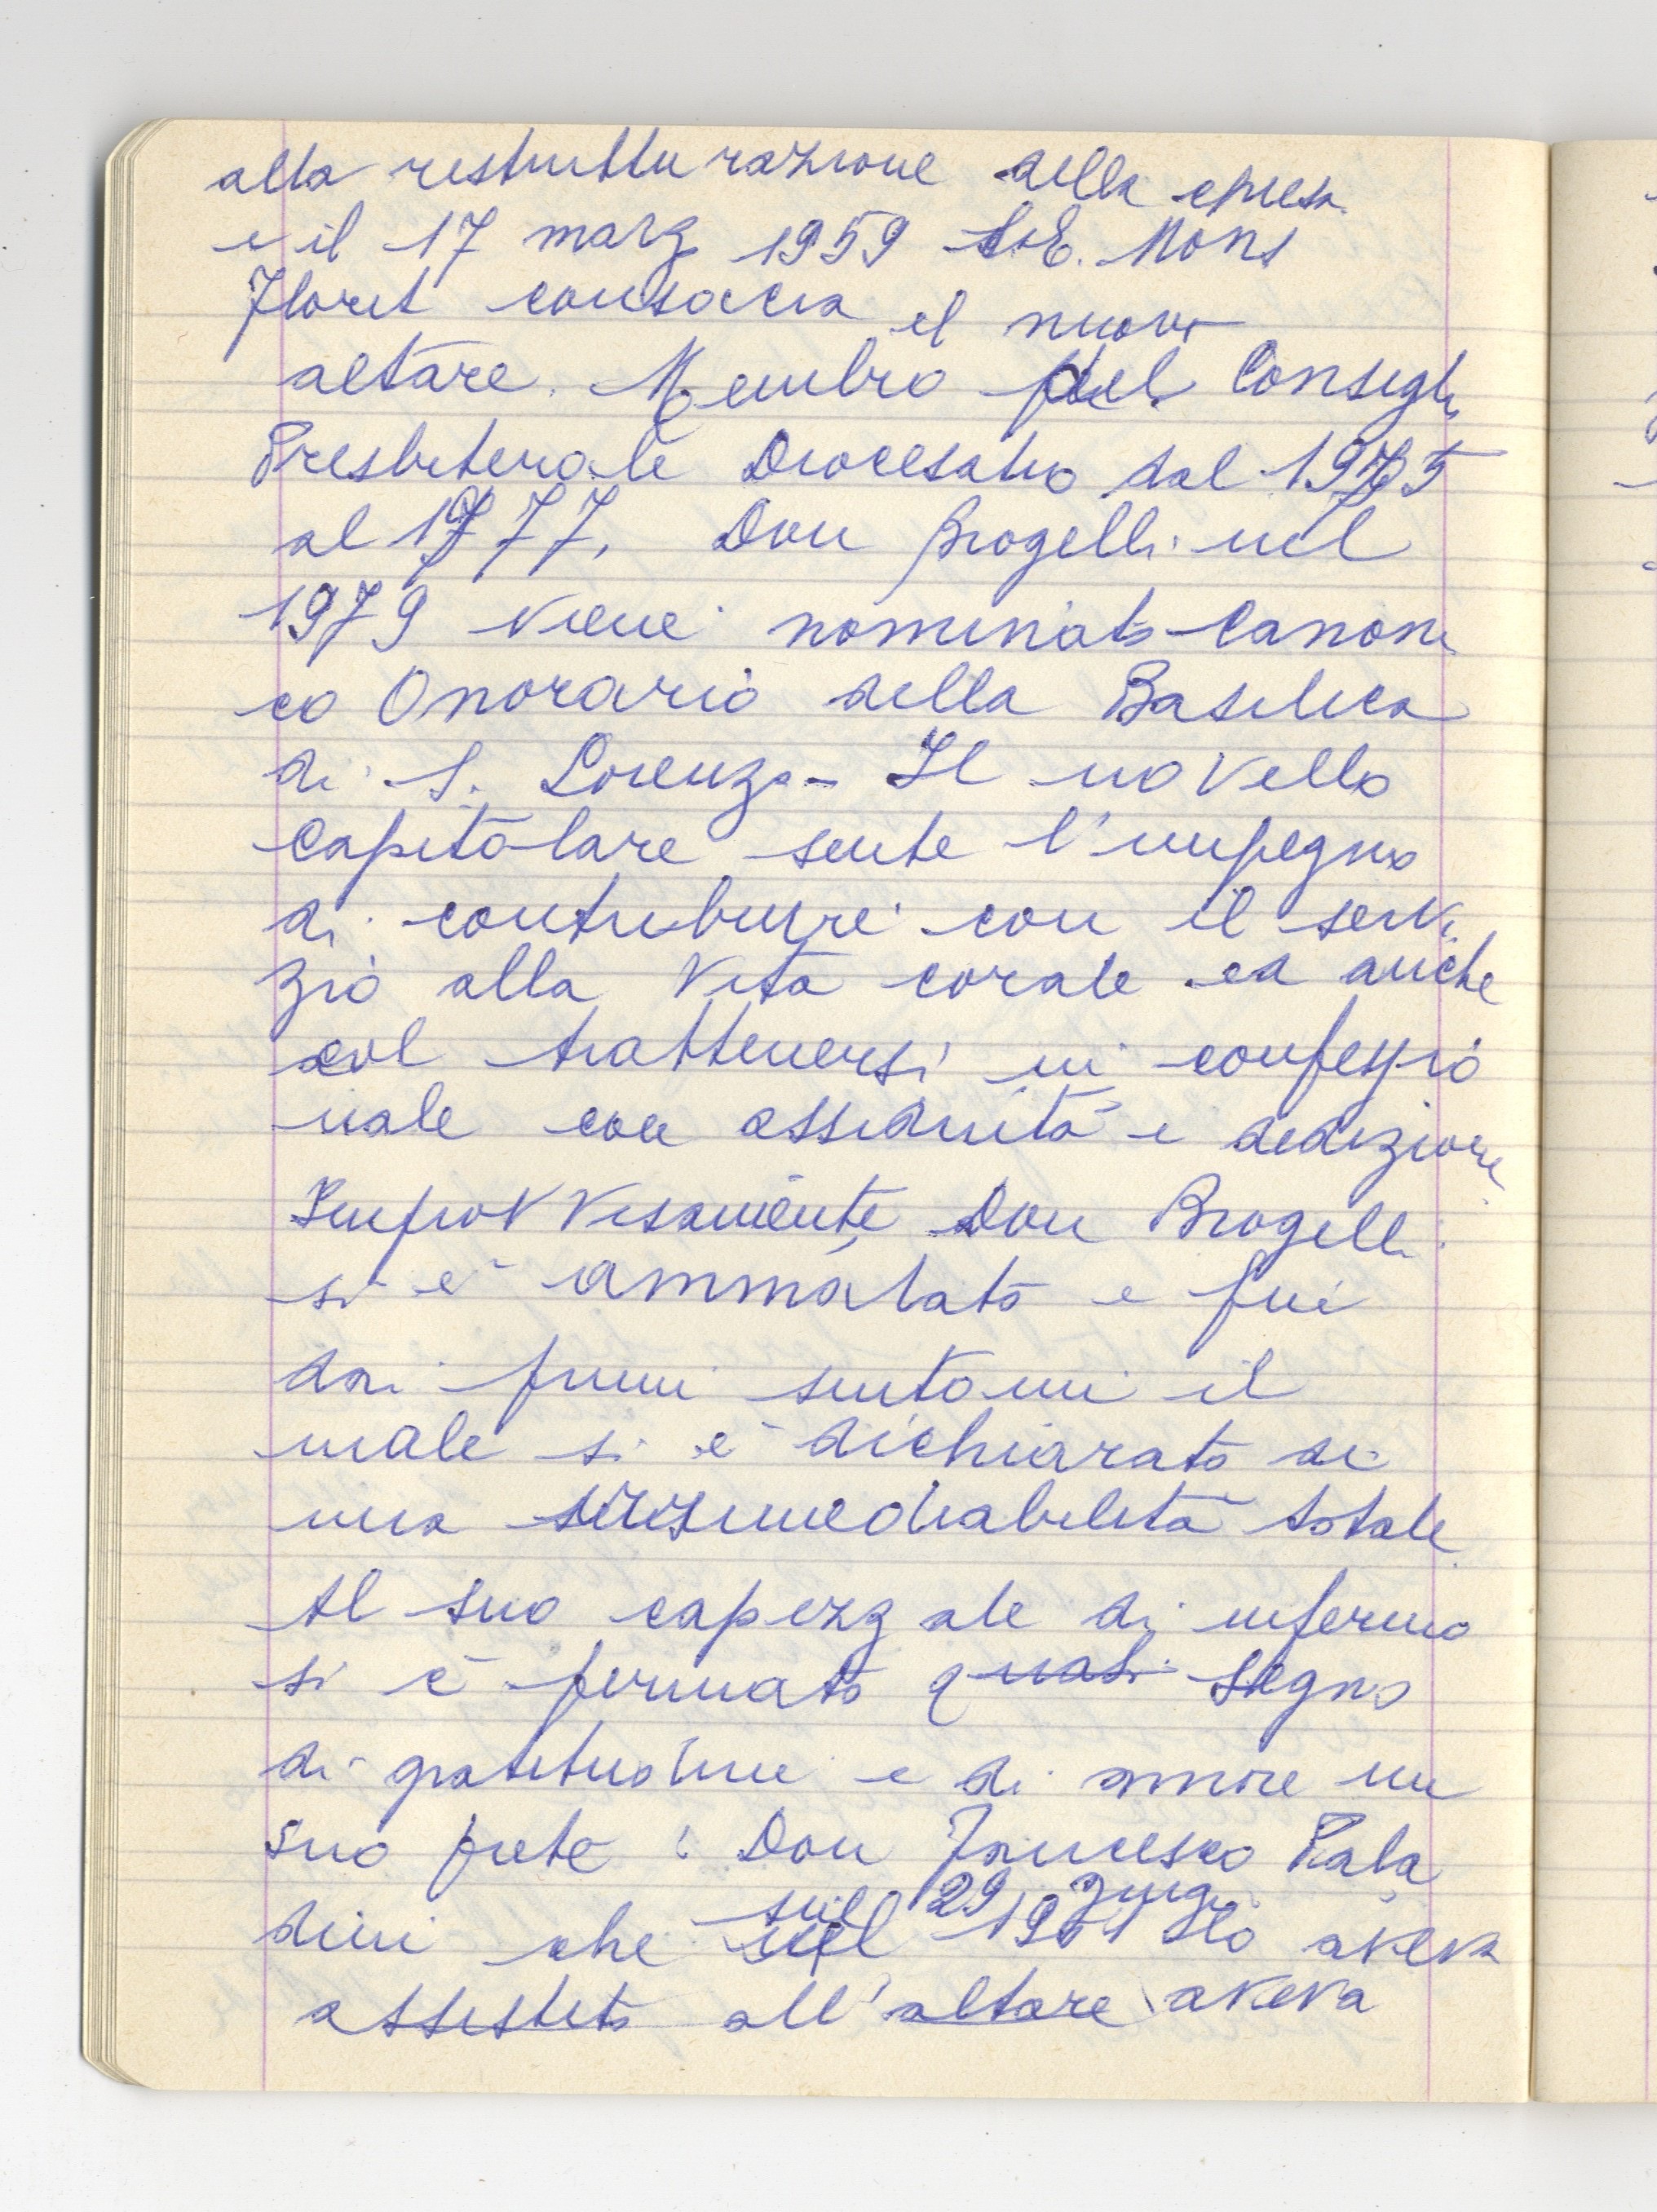 alla restrutturazione della chiesa
e il 17 marz 1959 S.E. Mons
Florit consacra il nuovo
altare. Membro del Consigli
Presbiterale Diocesano dal 1975
al 1977. Don Brogelli nel
1979 viene nominato Canoni
co Onorario della Basilica
di S. Lorenzo - Il novello
Capitolare sente l'impegno
di contribuire con il servi
zio alla vita corale ed anche
col trattenersi in confessio
nale con assiduità e dedizione
Improvvisamente Don Brogelli
si è ammalato e fin
dai primi sintomi il
male si è dichiarato di
una irrimediabilità totale
Al suo capezzale di infermo
si è fermato quasi segno
di gratitudine e di amore un
suo prete: Don Francesco Pala
sul 29 giug
dini che nel 19 1 lo aveva
assistito all'altare aveva